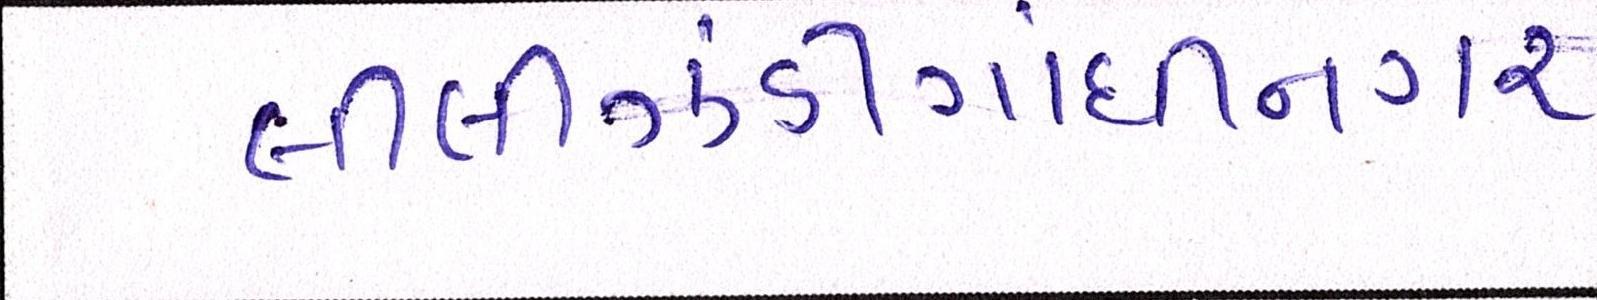 લીલીઝંડીગાંધીનગર